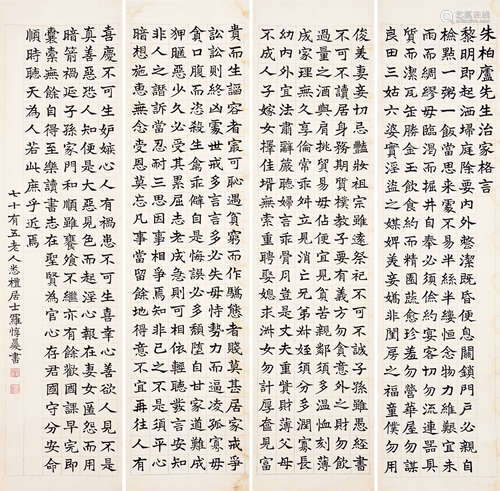 朱柏廬先生治家格言
黎明即起洒掃庭除要內外整潔既昏便息關鎖門戶必親自
檢點一粥一飯當思來處不易半絲半縷恒念物力維艱宜未
雨而綢繆毋臨渴而掘井自奉必須儉約宴客切勿流連器具
質而潔瓦缶勝金玉飲食約而精園蔬愈珍羞勿營華屋勿謀
良田三姑六婆實淫盜之媒婢美妾嬌非閨房之福童僕勿用
俊美妻妾切忌豔妝祖宗雖遠祭祀不可不誠子孫雖愚經書
不可不讀居身務期質樸教子要有義方勿貪意外之財勿飲
過量之酒與肩挑貿易毋佔便宜見貧苦親鄰須多溫恤刻薄
成家理無久享倫常乖舛立見消亡兄弟叔姪須分多潤寡長
幼內外宜法肅辭嚴聽婦言乖骨肉豈是丈夫重貲財薄父母
不成人子嫁女擇佳壻毋索重聘娶媳求淑女勿計厚奩見富
貴而生諂容者最可恥遇貧窮而作驕態者賤莫甚居家戒爭
訟訟則終凶處世戒多言言多必失毋恃勢力而逼凌孤寡毋
貪口腹而恣殺生禽乖僻自是悔誤必多頹墮自甘家道難成
狎暱惡少久必受其累屈志老成急則可相依輕聽發言安知
非人之譖訴當忍耐三思因事相爭焉知非己之不是須平心
暗想施惠無念受恩莫忘凡事當留餘地得意不宜再往人有
喜慶不可生妒嫉心人有禍患不可生喜幸心善欲人見不是
真善惡恐人知便是大惡見色而起淫心報在妻女匿怨而用
暗箭禍延子孫家門和順雖饔飧不繼亦有餘歡國課早完即
囊橐無餘自得至樂讀書志在聖賢為官心存君國守分安命
順時聽天為人若此庶乎近焉
七十有五老人悉檀居士羅惇㬊書